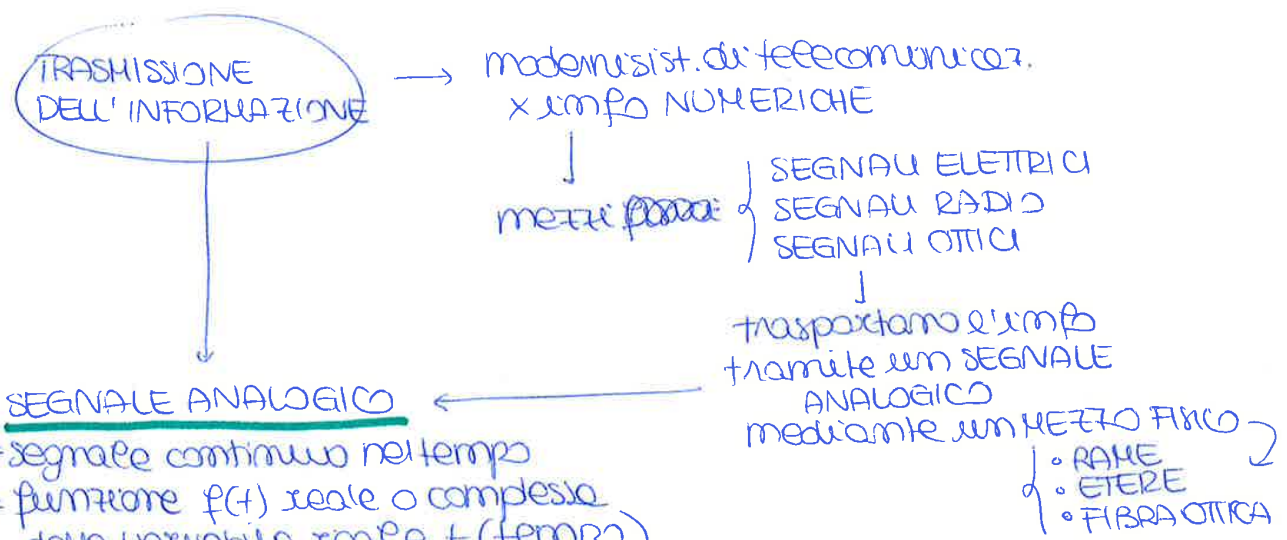 TRASMISSIONE
DELL'INFORMAZIONE
→ moderni sist. di telecomunicaz.
x info NUMERICHE
mezzi
SEGNALI ELETTRICI
SEGNALI RADIO
SEGNALI OTTICI
trasportano l'info
tramite un SEGNALE
ANALOGICO
mediante un MEZZO FISICO
• RAME
• ETERE
• FIBRA OTTICA
SEGNALE ANALOGICO
- segnale continuo nel tempo
- funzione f(t) reale o complessa
della variabile reale t (tempo)